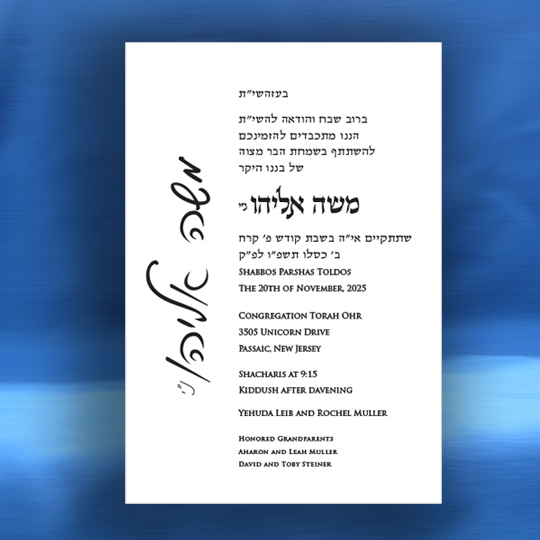 בעזהשי״ת
ברוב שבח והודאה להשי״ת
הננו מתכבדים להזמינכם
להשתתף בשמחת הבר מצוה
של בננו היקר
משה אליהו ני׳
שתתקיים אי״ה בשבת קודש פ׳ קרח
ב׳ כסלו תשפ״ו לפ״ק
Shabbos Parshas Toldos
The 20th of November, 2025
Congregation Torah Ohr
3505 Unicorn Drive
Passaic, New Jersey
Shacharis at 9:15
Kiddush after davening
Yehuda Leib and Rochel Muller
Honored Grandparents
Aharon and Leah Muller
David and Toby Steiner
משה אליהו ני״